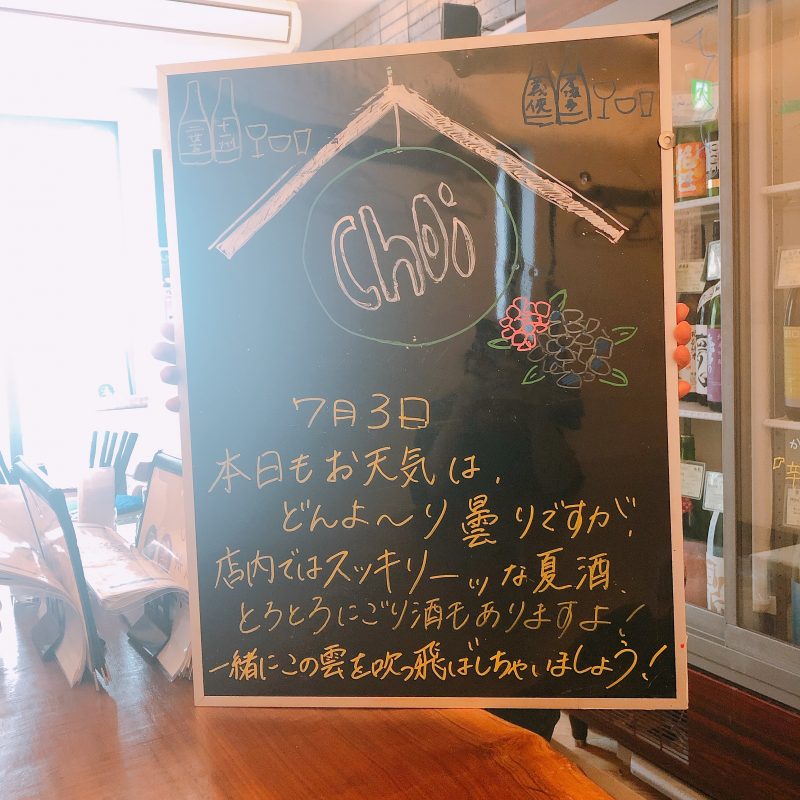 義侠
Choi
7月3日
本日もお天気は、
どんよ～り曇りですが、
店内ではスッキリーッな夏酒、
とろとろにごり酒もありますよ！
一緒にこの雲を吹っ飛ばしちゃいましょう！